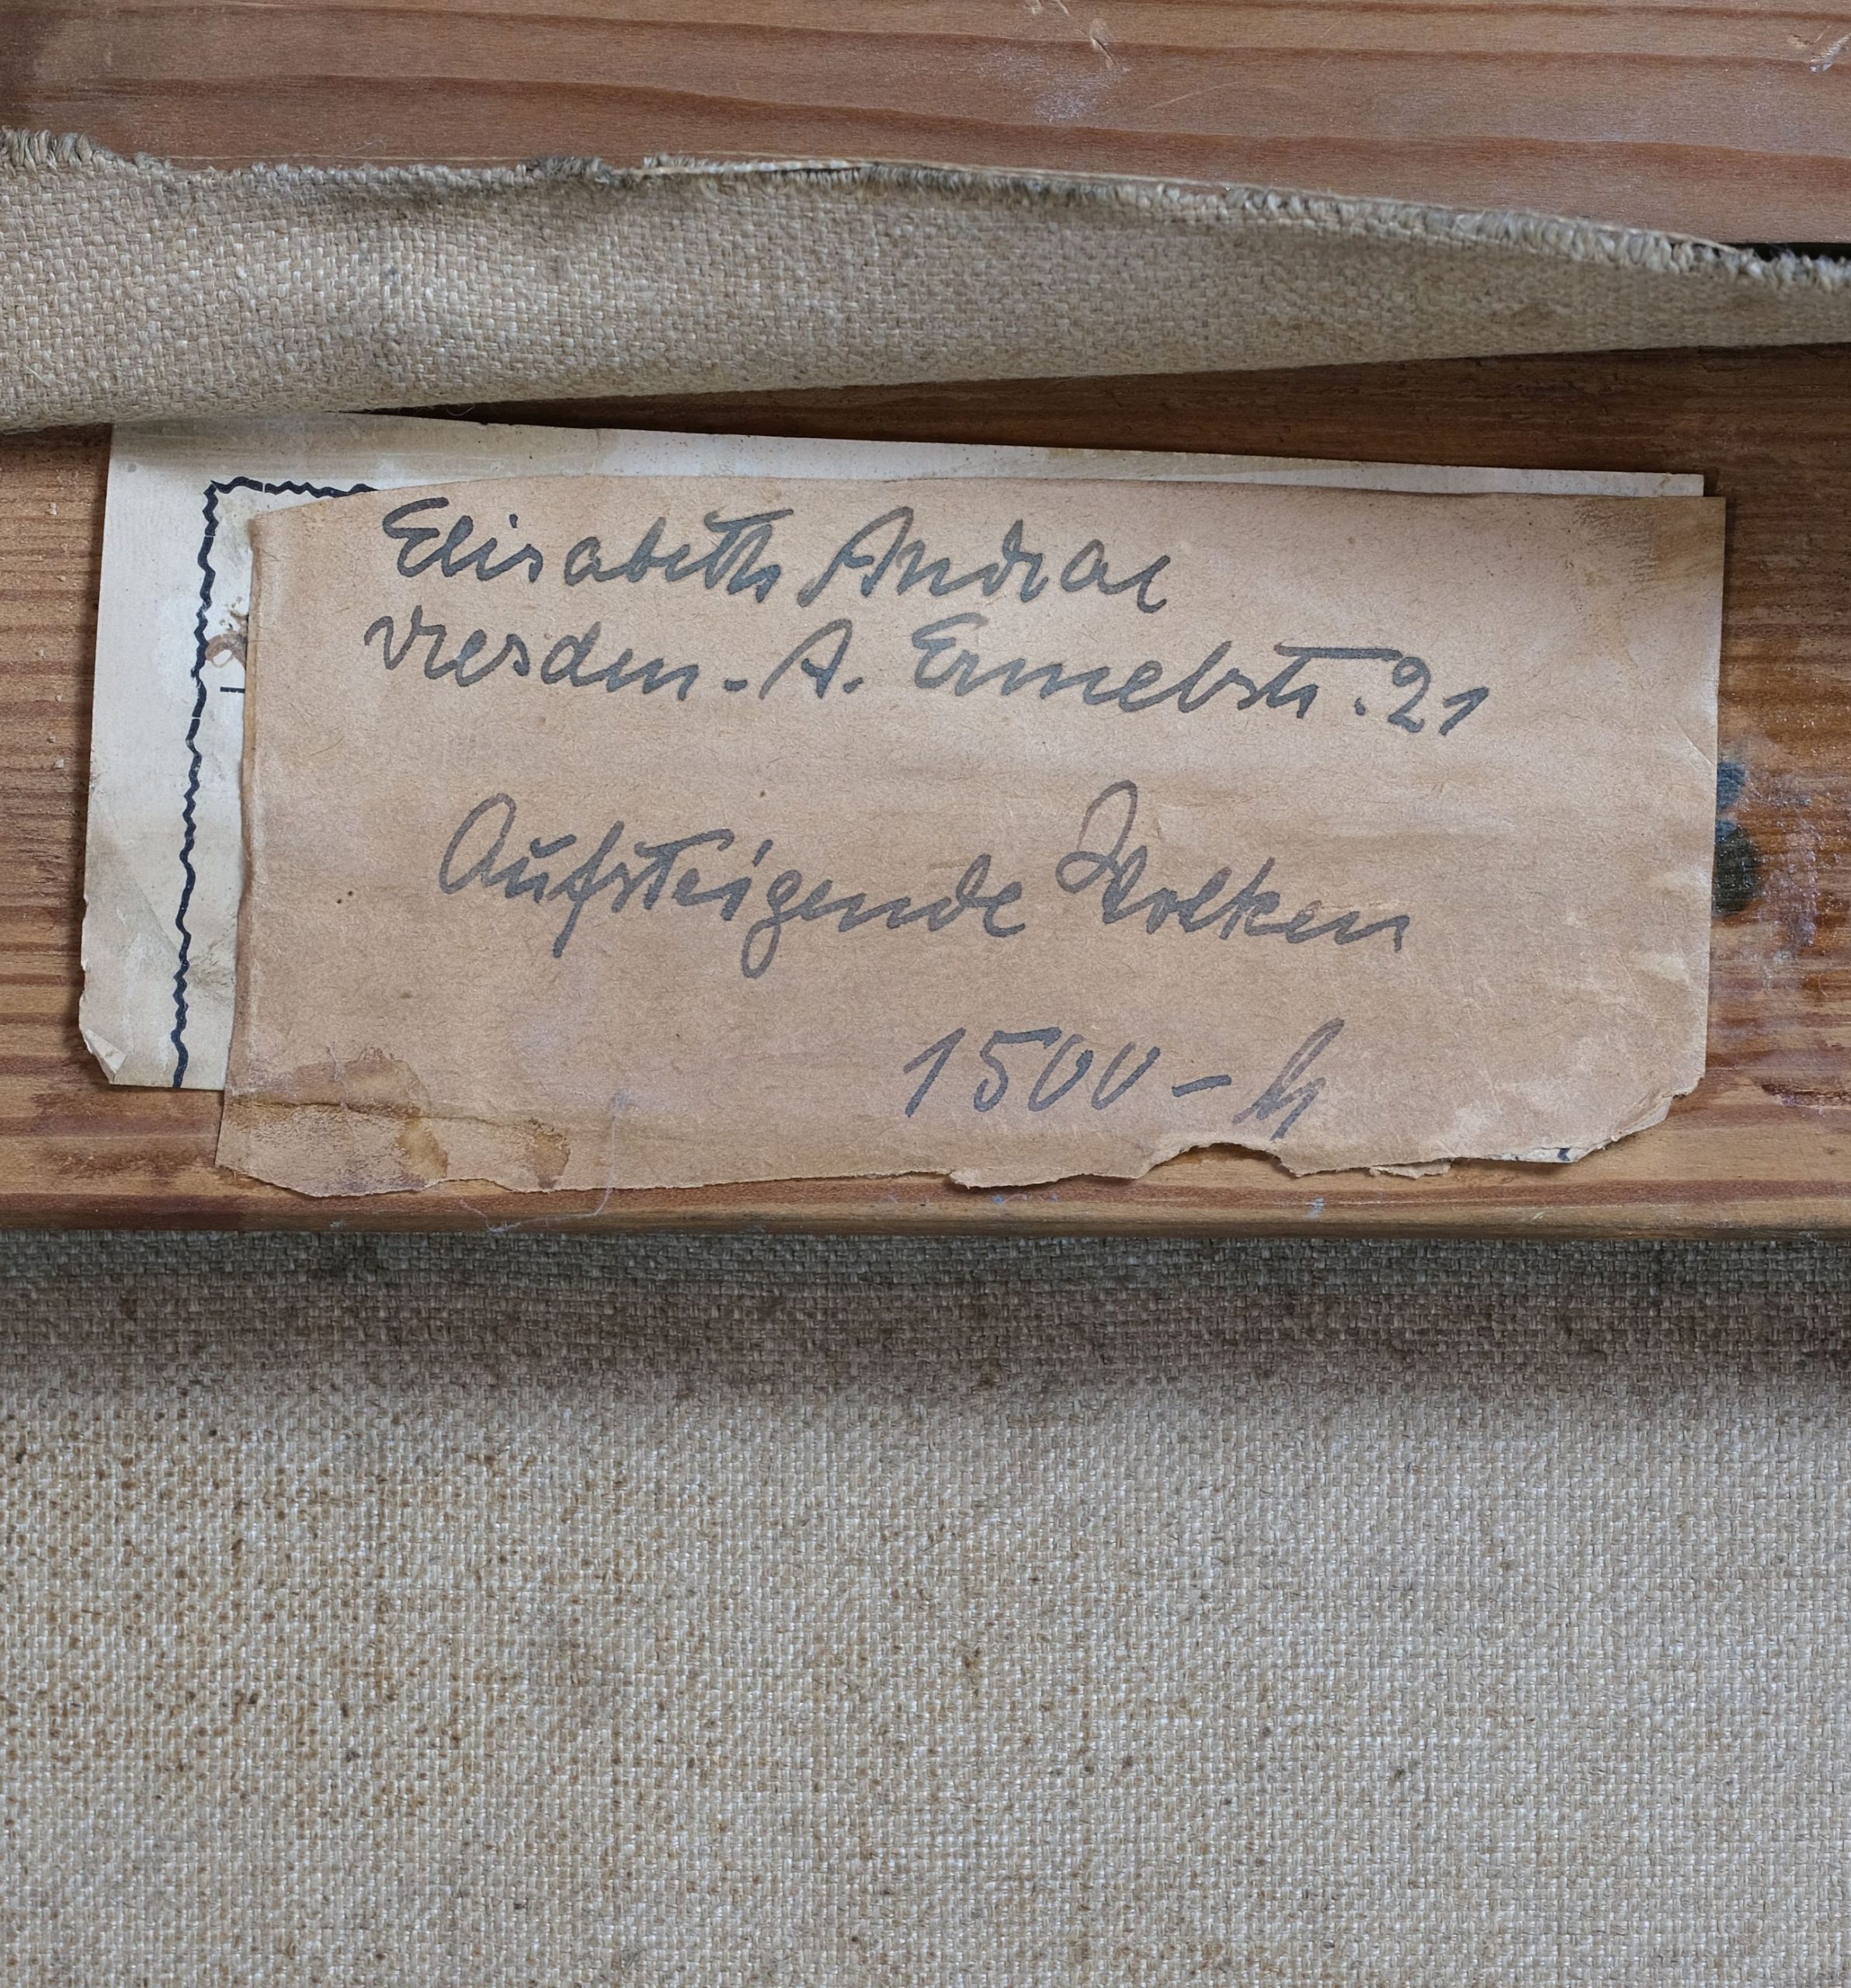 Elisabeth Andrae
Dresden-A. Ermelstr. 21
Aufsteigende Wolken
1500 – M